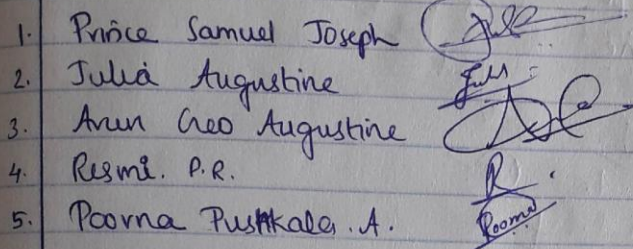 1. Prince Samuel Joseph
2. Julia Augustine July
3. Arun Geo Augustine
4. Resmi. P.R. R
5. Poorna Pushkala. A. Poorna